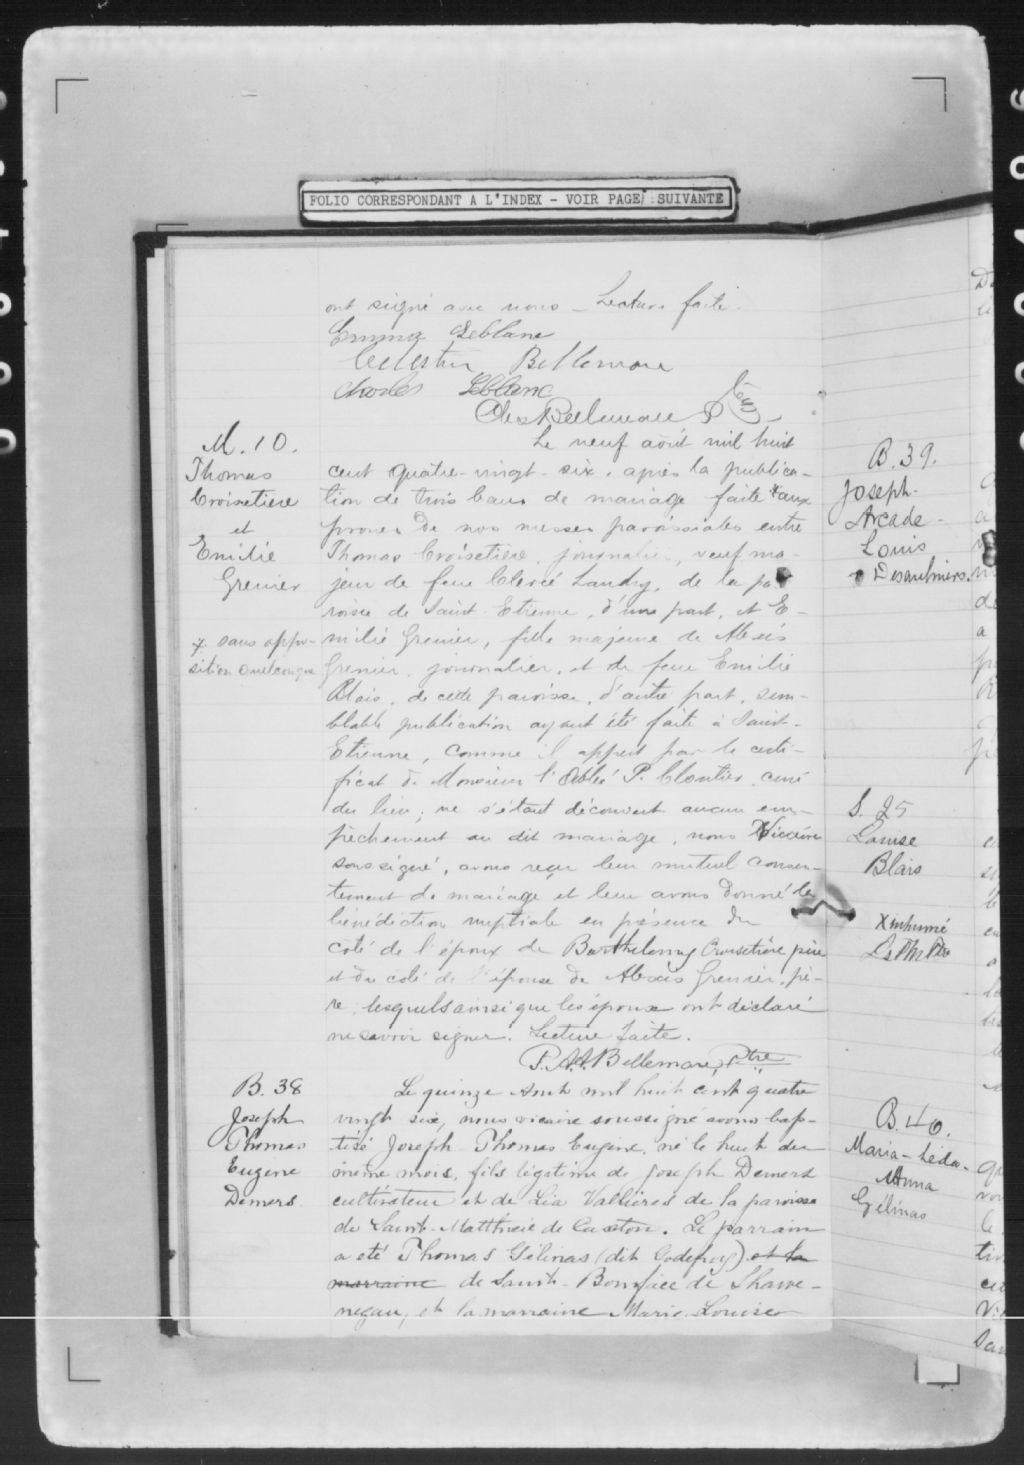 FOLIO CORRESPONDANT A L'INDEX - VOIR PAGE SUIVANTE
ont signé avec nous - Lecture faite.
Emma Leblanc
Celestin Bellemare
Charles Leblanc
Bellemare
M. 10.
Thomas
Croisetiere
et
Emilie
Grenier
x sans oppo-
sition quelconque
Le neuf août mil huit
cent quatre-vingt-six, après la publica-
tion de trois bans de mariage faite x aux
prones de nos messes paroissiales entre
Thomas Croisetiere, journalier, veuf ma-
jeur de feue Landry, de la pa-
roisse de Saint-Etienne, d'une part, et E-
milie Grenier, fille majeure de Alexis
Grenier, journalier, et de feue Emilie
Blais, de cette paroisse, d'autre part, sem-
blable publication ayant été faite à Saint-
Etienne, comme il appert par le certi-
ficat de Monsieur l'Abbé P. Cloutier, curé
du lieu; ne s'étant découvert aucun em-
pêchement au dit mariage, nous Vicaire
soussigné, avons reçu leur mutuel consen-
tement de mariage et leur avons donné la
bénédiction nuptiale en présence du
coté de l'époux de Barthelemy Croisetière père
et du coté de l'épouse de Alexis Grenier, pè-
re, lesquels ainsi que les époux ont déclaré
ne savoir signer. Lecture faite.
Bellemare, Ptre
B. 38
Joseph
Thomas
Eugène
Demers
Le quinze Août mil huit cent quatre
vingt six, nous vicaire soussigné avons bap-
tisé Joseph-Thomas Eugène, né le huit du
même mois, fils légitime de Joseph Demers
cultivateur et de Lia Vallières de la paroisse
de Saint-Matthieu de Caxton. Le parrain
a été Thomas Gélinas (dit Godefroy) et la
marraine de Saint-Boniface de Shawe-
negan, et la marraine Marie Louise
B. 39.
Joseph-
Arcade-
Louis
Desaulniers.
S. 25
Louise
Blais
x inhumé
B. 40.
Maria-Léda-
Anna
Gélinas